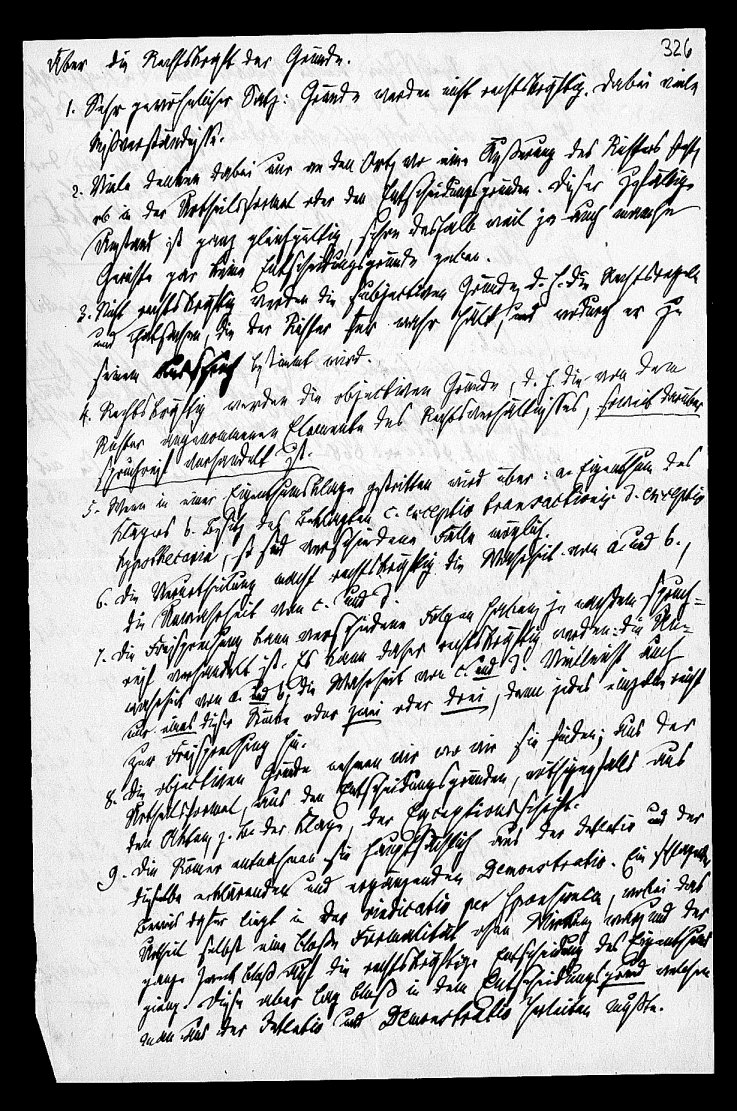 326
Über die Rechtskraft der Gründe.
1. Sehr gewöhnlicher Satz: Gründe werden nicht rechtskräftig. Dabei viele
Mißverständnisse.
2. Viele denken dabei nur an den Ort, wo eine Äußerung des Richters steht,
ob in der Urtheilsformel oder den Entscheidungsgründen. Dieser zufällige
Umstand ist ganz gleichgültig, schon deshalb weil ja auch manche
Gerichte gar keine Entscheidungsgründe geben.
3. Nicht rechtskräftig werden die subjectiven Gründe, d. h. die Rechtsregeln
und Thatsachen, die der Richter für wahr hält, und wodurch er zu
seinem Ausspruch bestimmt wird.
4. Rechtskräftig werden die objectiven Gründe, d. h. die von dem
Richter angenommenen Elemente des Rechtsverhältnisses, soweit darüber
spruchreif verhandelt ist.
5. Wenn in einer Eigenthumsklage gestritten wird über: a. Eigenthum des
Klägers b. Besitz des Beklagten c. exceptio transactionis d. exceptio
hypothecaria, so sind verschiedene Fälle möglich.
6. Die Verurtheilung macht rechtskräftig die Wahrheit von a. und b.,
die Unwahrheit von c. und d.
7. Die Freisprechung kann verschiedene Folgen haben, je nachdem spruch-
reif verhandelt ist. Es kann daher rechtskräftig werden: die Un-
wahrheit von a. und b., die Wahrheit von c. und d. Vielleicht auch
nur eines dieser Stücke oder zwei oder drei, denn jedes einzelne reicht
zur Freisprechung hin.
8. Die objectiven Gründe nehmen wir wo wir sie finden; aus der
Urtheilsformel, aus den Entscheidungsgründen, nöthigenfalls aus
den Akten, z. B. der Klage, der Exceptionsschrift.
9. Die Römer entnahmen sie hauptsächlich aus der Intentio und der
dieselbe erklärenden und ergänzenden Demonstratio. Ein schlagender
Beweis dafür liegt in der vindicatio per sponsionem, wobei das
Urtheil selbst eine bloße Formalität ohne Wirkung war, und der
ganze Zweck bloß auf die rechtskräftige Entscheidung des Eigenthums
gieng. Diese aber lag bloß in dem Entscheidungsgrund welchen
man aus der Intentio und Demonstratio herleiten mußte.